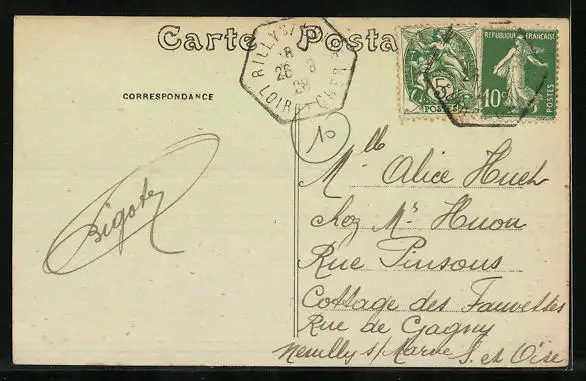 Carte Posta
RILLY S/
18
26 8
28
LOIR ET CHER
5c
POSTES
REPUBLIQUE FRANÇAISE
10c
POSTES
CORRESPONDANCE
10
Bigote
Mlle Alice Huet
chez Mr Huon
Rue Pinsons
Cottage des Fauvettes
Rue de Gagny
Neuilly s/ Marne S. et Oise